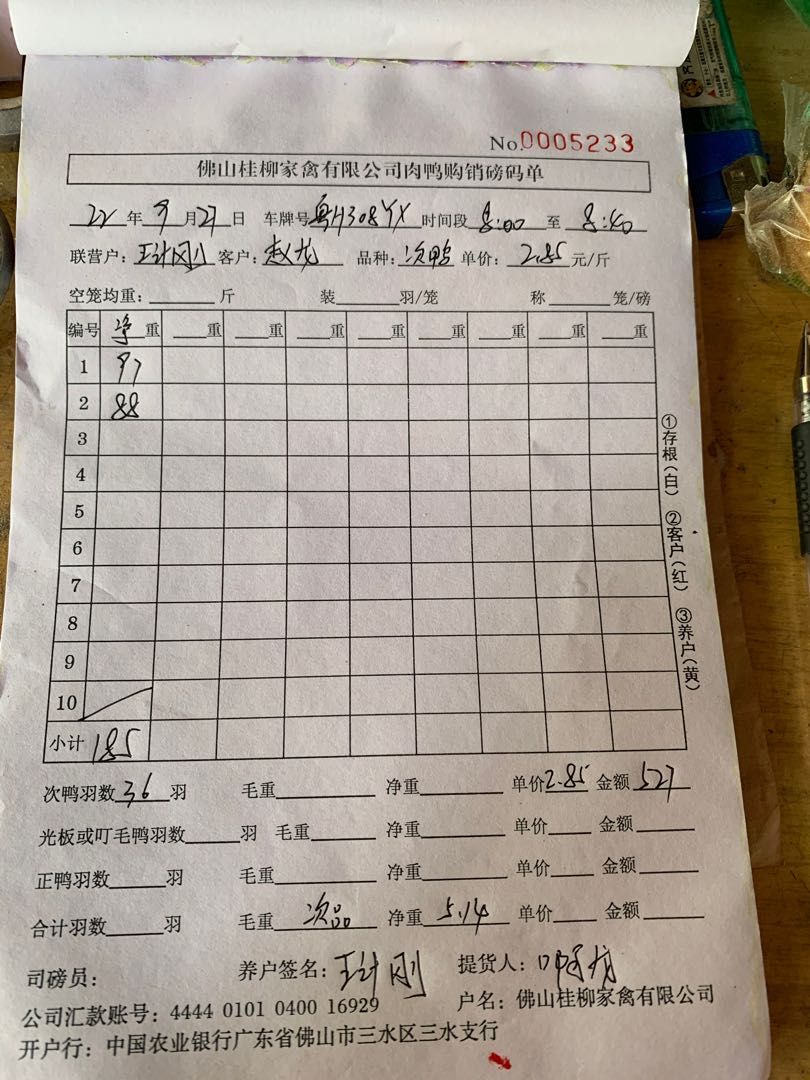 No.0005233
佛山桂柳家禽有限公司肉鸭购销磅码单
22年9月27日 车牌号粤H308YX 时间段8:00至8:40
联营户：王计刚 客户：赵龙 品种：次鸭 单价：2.85元/斤
空笼均重：斤 装羽/笼 称笼/磅
编号 净重 重 重 重 重 重 重 重 重
1 97
2 88
3
4
5
6
7
8
9
10
小计 185
①存根(白) ②客户(红) ③养户(黄)
次鸭羽数36羽 毛重 净重 单价2.85 金额527
光板或叮毛鸭羽数羽 毛重 净重 单价 金额
正鸭羽数羽 毛重 净重 单价 金额
合计羽数羽 毛重次品 净重5.14 单价 金额
司磅员： 养户签名：王计刚 提货人：
公司汇款账号：4444 0101 0400 16929 户名：佛山桂柳家禽有限公司
开户行：中国农业银行广东省佛山市三水区三水支行